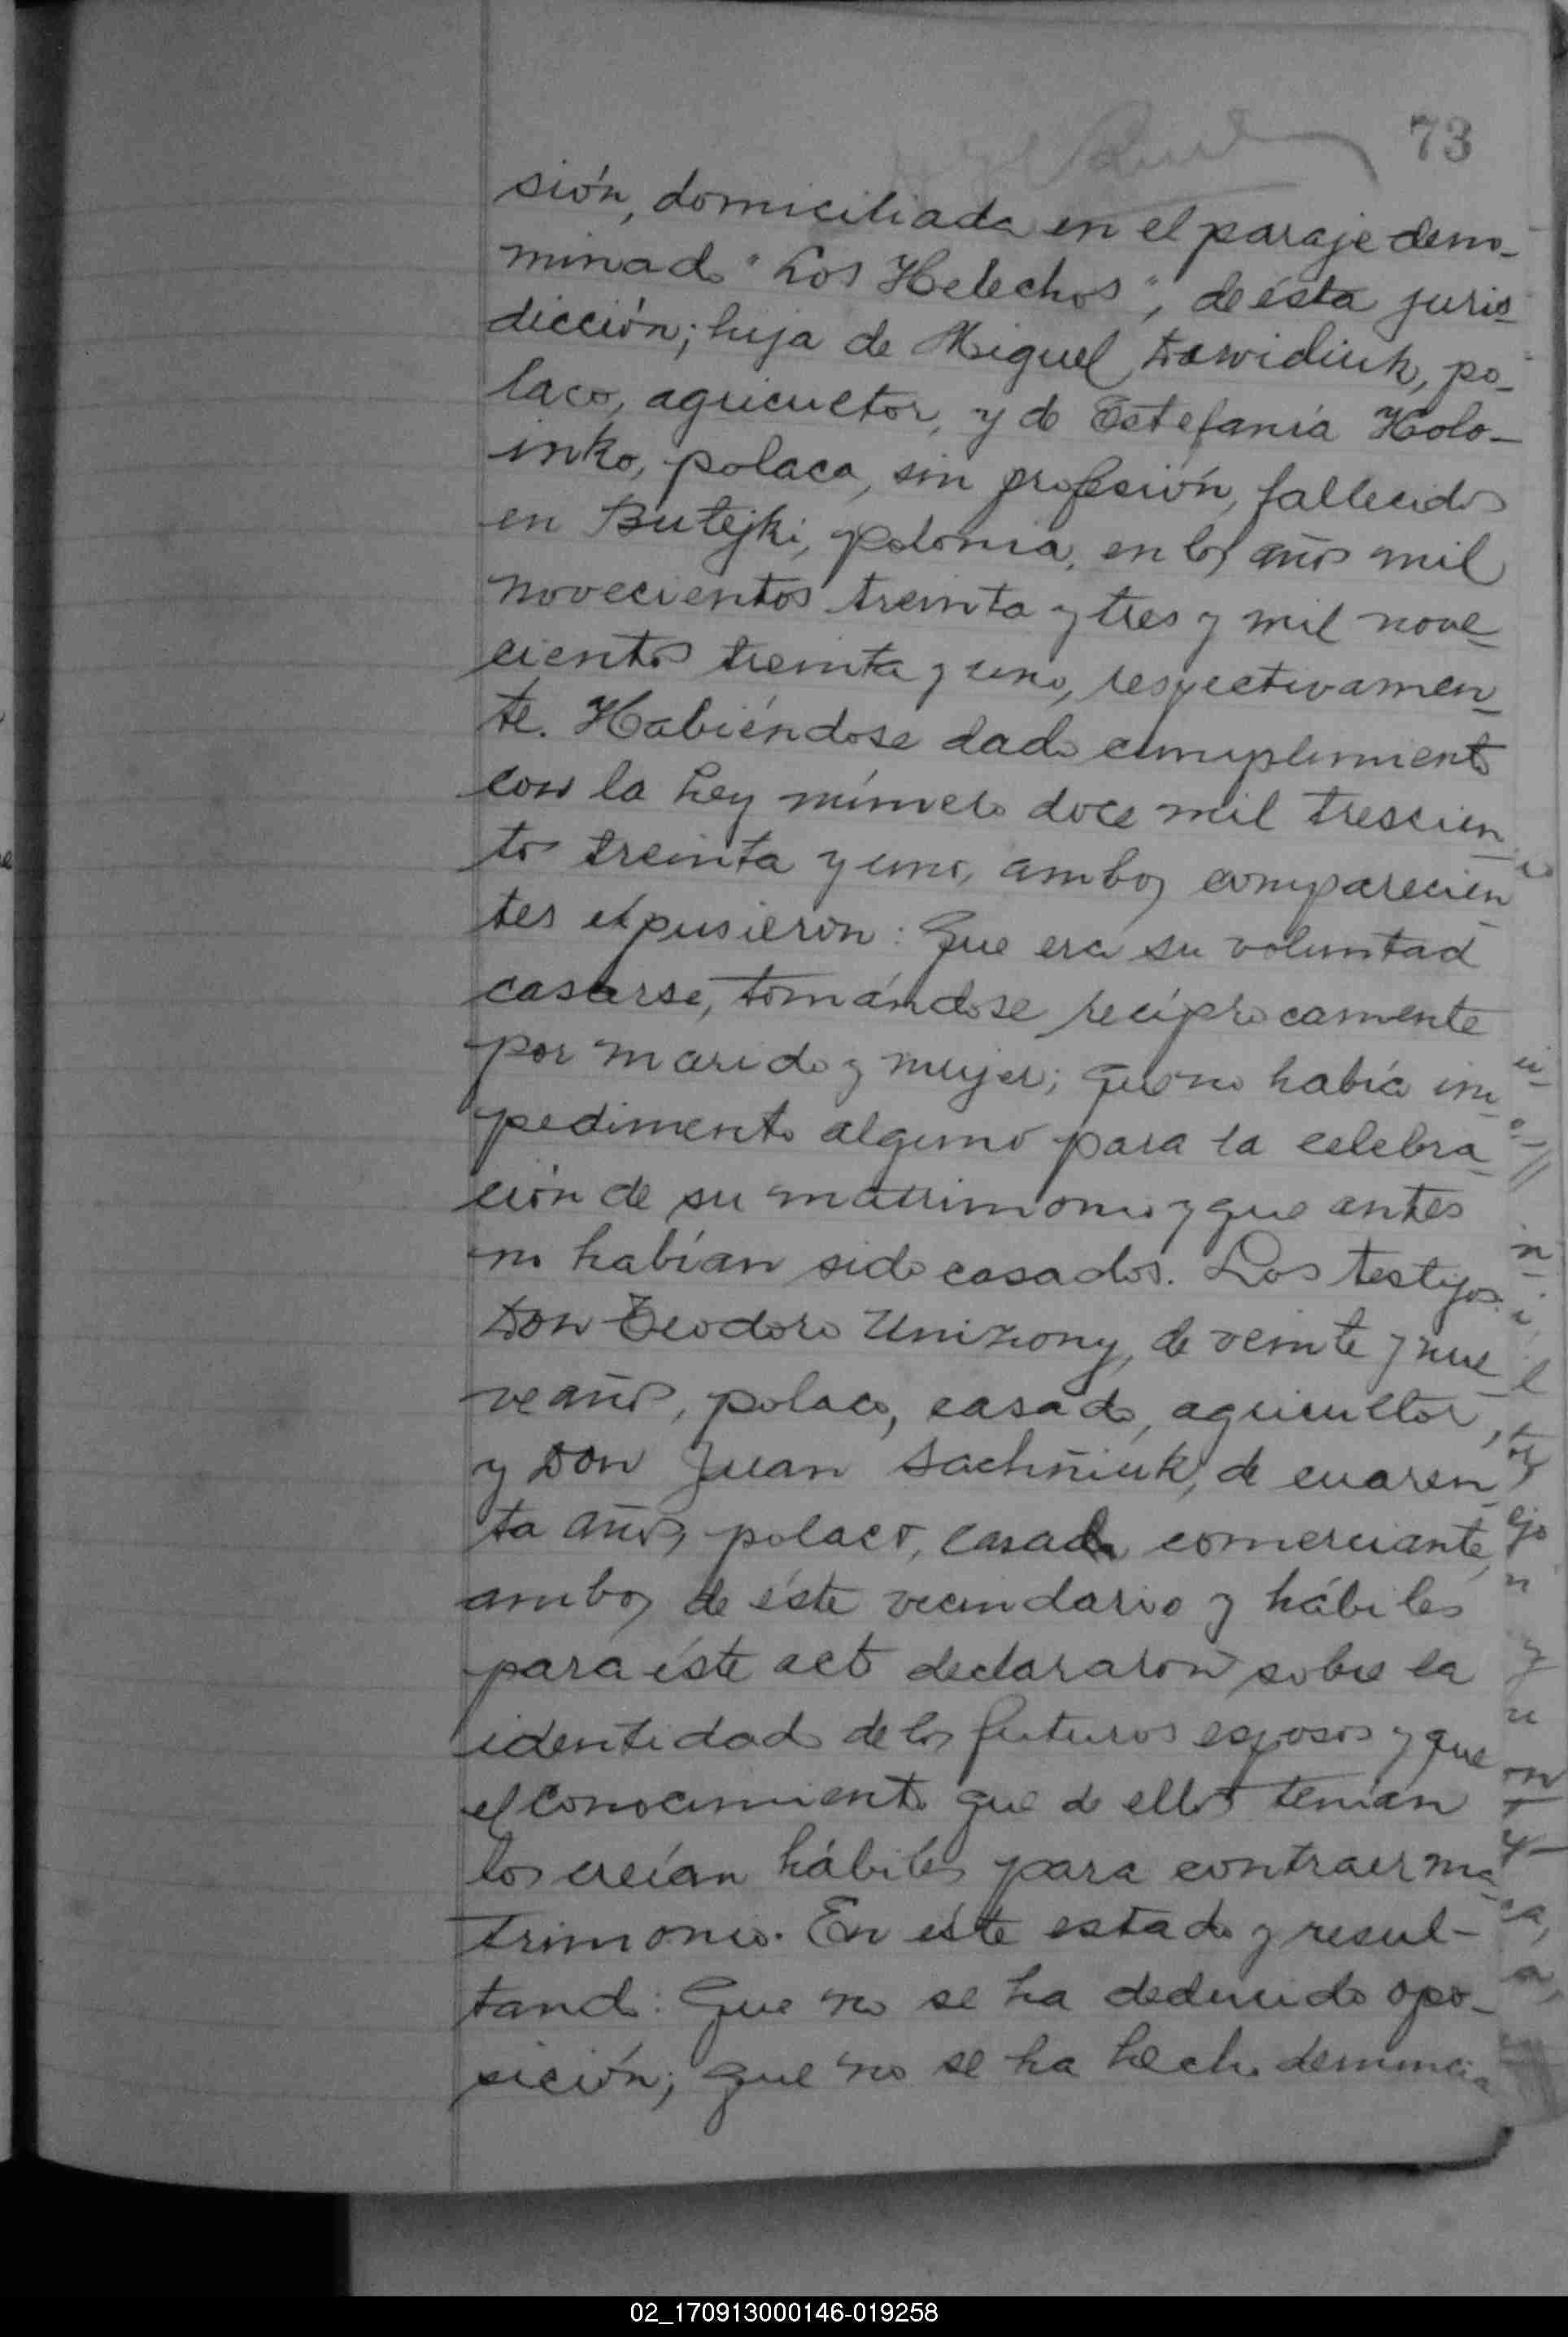 73
sión, domiciliada en el paraje deno-
minado "Los Helechos", de ésta juris-
dicción; hija de Miguel Dawidiuk, po-
laco, agricultor, y de Estefanía Holo-
inko, polaca, sin profesión, fallecidos
en Butejki, polonia, en los años mil
novecientos treinta y tres y mil nove-
cientos treinta y uno, respectivamen-
te. Habiéndose dado cumplimiento
con la Ley número doce mil trescien-
tos treinta y uno, ambos comparecien-
tes expusieron: Que era su voluntad
casarse, tomándose recíprocamente
por marido y mujer; que no había im-
pedimento alguno para la celebra-
ción de su matrimonio y que antes
no habían sido casados. Los testigos:
Don Teodoro Unizony, de veinte y nue-
ve años, polaco, casado, agricultor,
y Don Juan Sachñiuk, de cuaren-
ta años, polaco, casado comerciante,
ambos de éste vecindario y hábiles
para éste acto declararon sobre la
identidad de los futuros esposos y que
el conocimiento que de ellos tenían
los creían hábiles para contraer ma-
trimonio. En éste estado y resul-
tando: Que no se ha deducido opo-
sición; que no se ha hecho denuncia
02_170913000146-019258